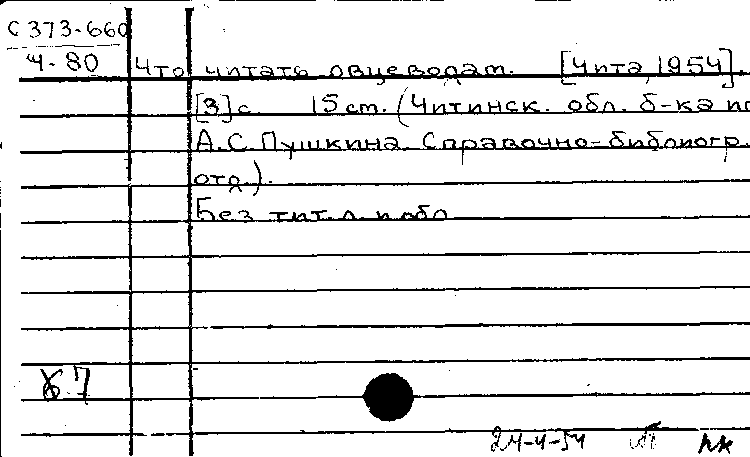 С 373-660
Ч-80 Что читать овцеводам. [Чита, 1954].
[3] с. 15 см. (Читинск. обл. б-ка
А.С. Пушкина. Справочно-библиогр.
отд.).
Без тит. л. и обл
24-4-54